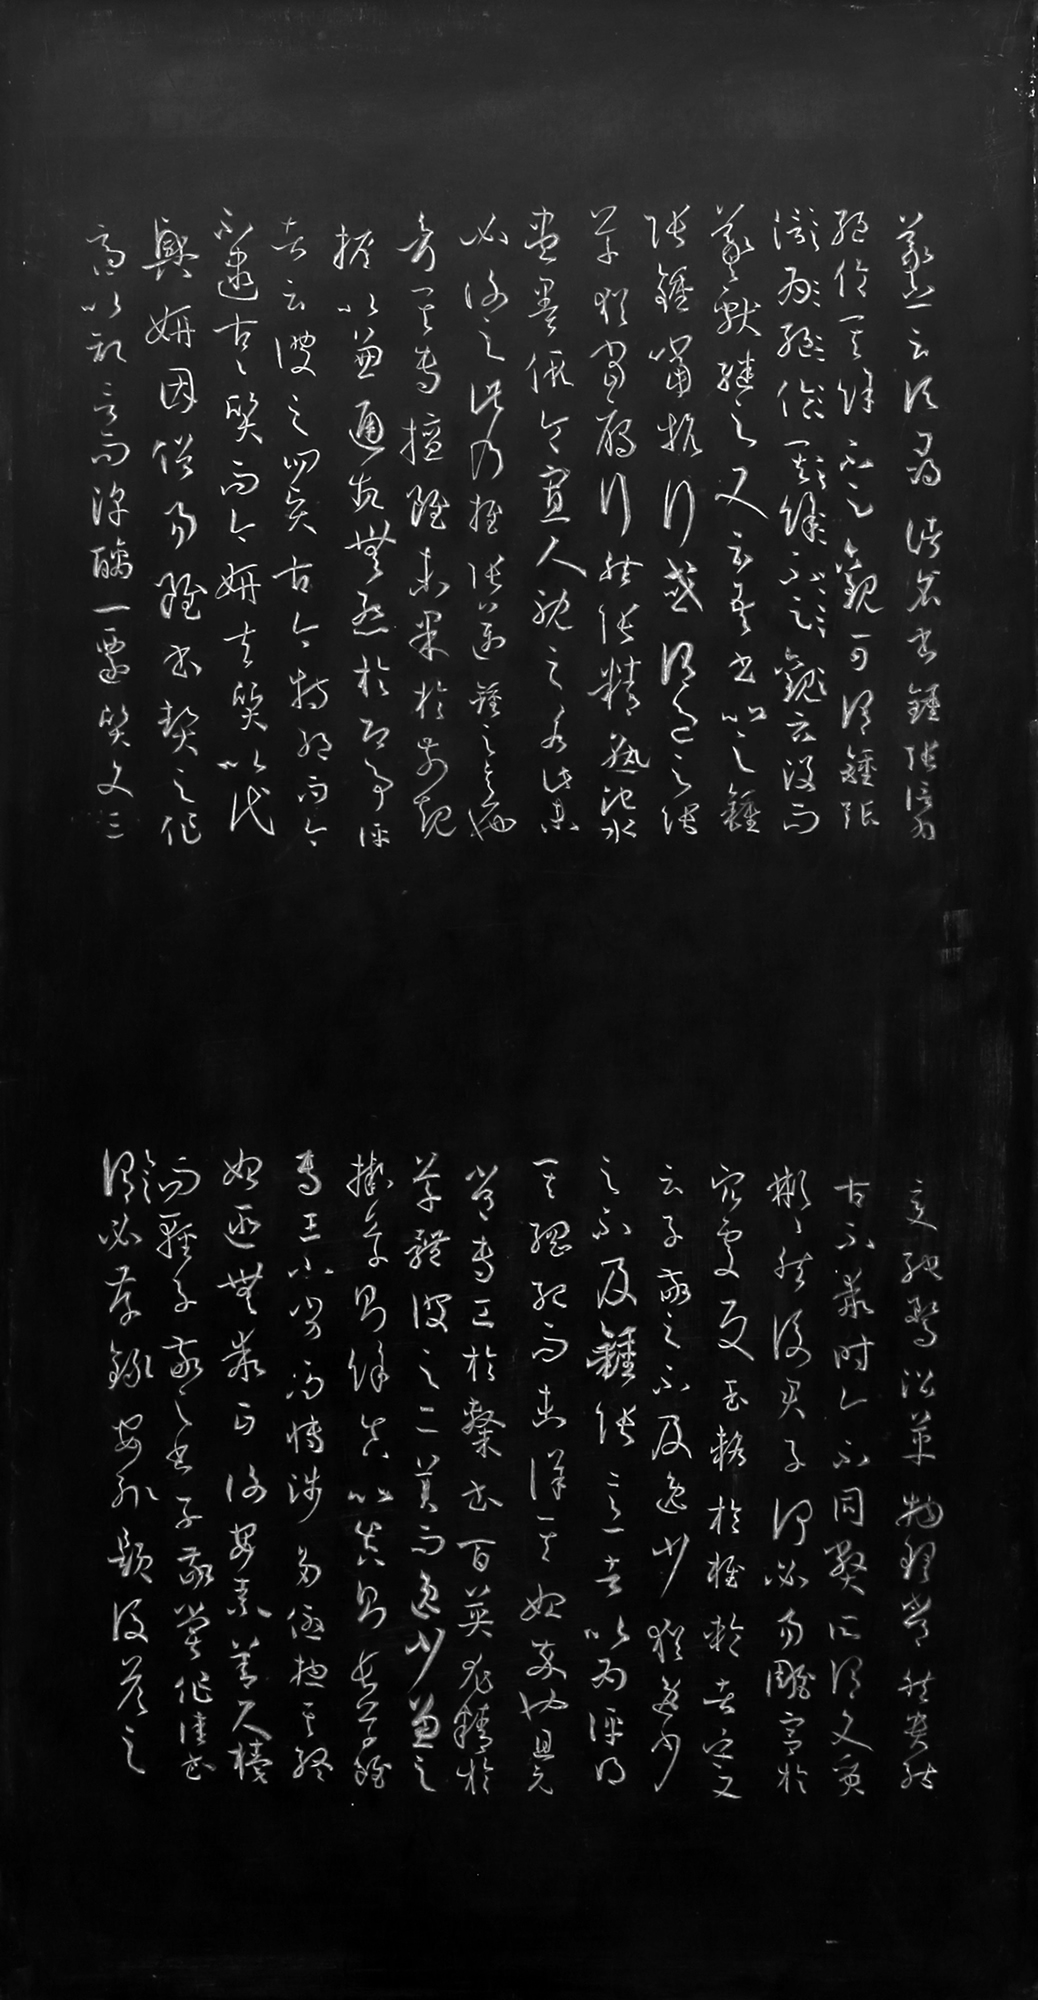 羲之云頃尋諸名書鍾張信為
絕倫其餘不足觀可謂鍾張
為絕倫其餘不足觀云沒而
羲獻繼之又云吾書比之鍾
張鍾當抗行或謂過之張
草猶當鴈行然張精熟池水
盡墨假令寡人耽之若此未
必謝之此乃推張邁鍾之意也
考其專擅雖未果於前規
摭以兼通故無慚於即事評
者云彼之四賢古今特絕而今
不逮古古質而今妍夫質以代
興妍因俗易雖書契之作
適以記言而淳醨一遷質文三
變馳騖沿革物理常然貴能
古不乖時今不同弊所謂文質
彬彬然後君子何必易雕宮於
穴處反玉輅於椎輪者乎又
云子敬之不及逸少猶逸少
之不及鍾張意者以為評得
其綱紀而未詳其始卒也且元
常專工於隸書百英尤精於
草體彼之二美而逸少兼之
擬草則餘真比真則長草雖
專工小劣而博涉多優總其終
始匪無乖互謝安素善尺牘
而輕子敬之書子敬嘗作佳書
與之謂必存錄安輒題後答之